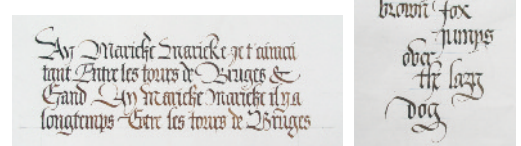 Ay Marieke Marieke je t'aimais
tant Entre les tours de Bruges &
Gand Ay Marieke Marieke il y a
longtemps Entre les tours de Bruges
brown fox
jumps
over
the lazy
dog